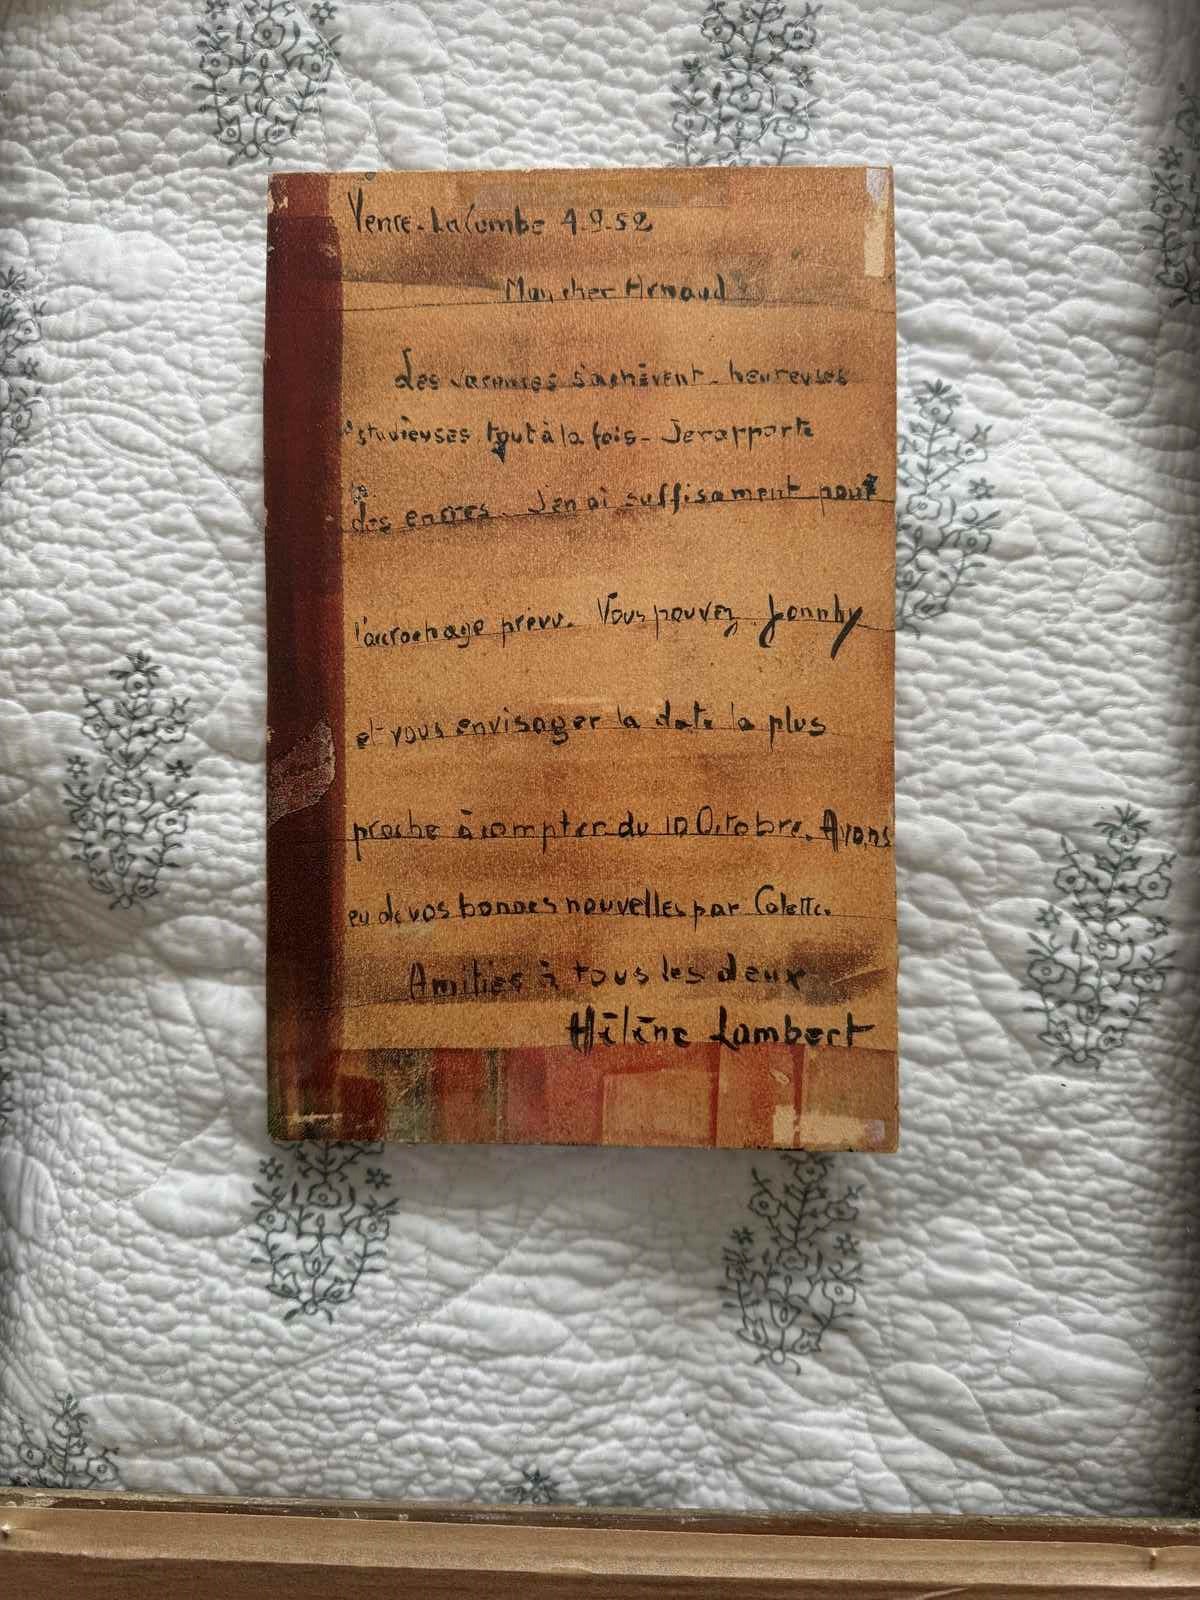 Vence. La Combe 4.9.52
Mon cher Arnaud
des vacances s'achèvent. heureuses
studieuses tout à la fois - Je rapporte
des encres. J'en ai suffisament pour
l'accrochage prévu. Vous pouvez
et vous envisager la date la plus
proche à compter du 10 Octobre. Avons
eu de vos bonnes nouvelles par Colette.
Amitiés à tous les deux
Hélène Lambert